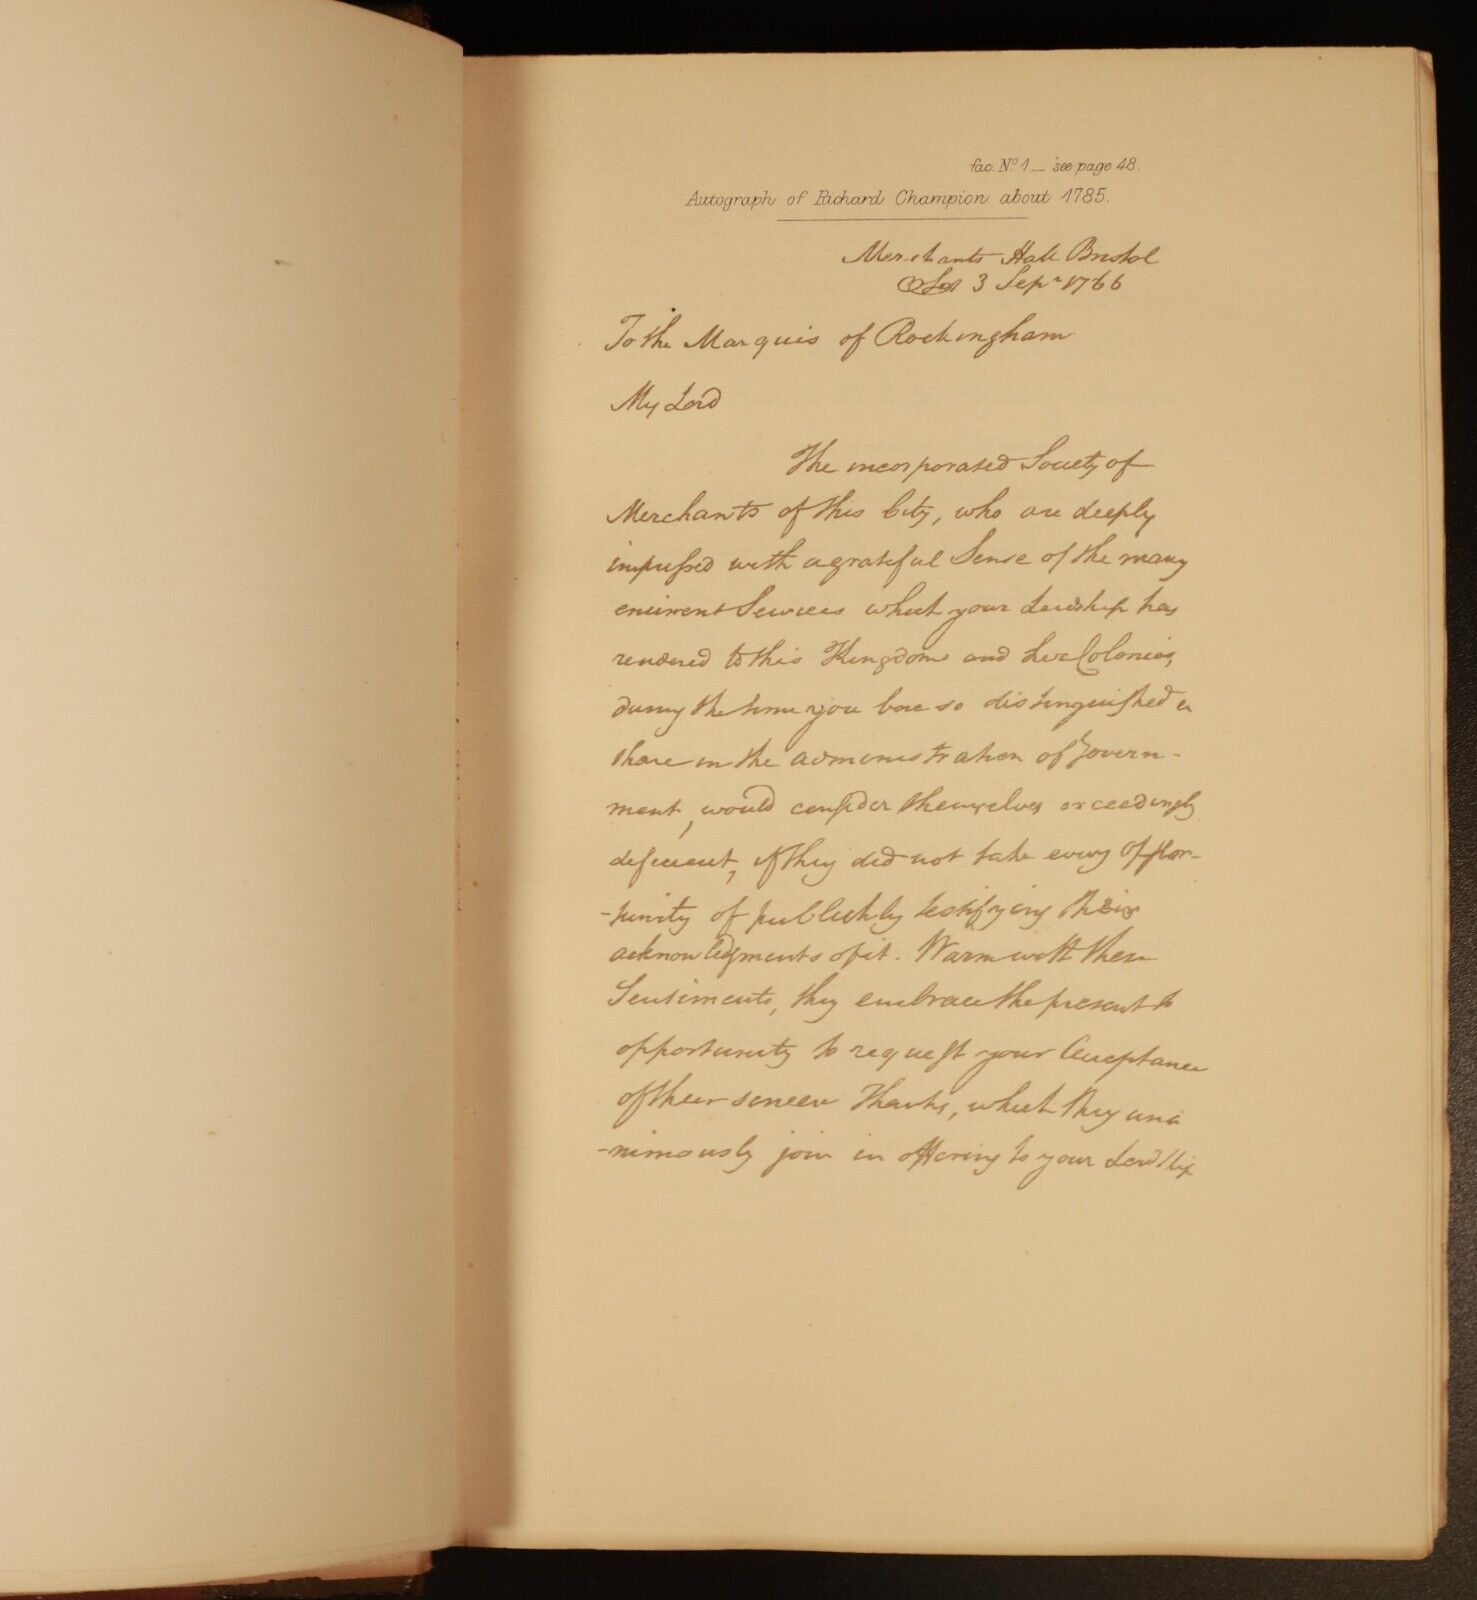 fac. No. 1 — see page 48.
Autograph of Richard Champion about 1785.
Merchants Hall Bristol
3 Sepr 1766
To the Marquis of Rockingham
My Lord
The incorporated Society of
Merchants of this City, who are deeply
impressed with a grateful Sense of the many
eminent Services which your Lordship has
rendered to this Kingdom and her Colonies,
during the time you bore so distinguished a
share in the administration of Govern-
ment, would consider themselves exceedingly
deficient, if they did not take every Oppor-
-tunity of publickly testifying their
acknowledgments of it. Warm with these
Sentiments, they embrace the present to
opportunity to request your Acceptance
of their sincere Thanks, which they una
-nimously join in offering to your Lordship